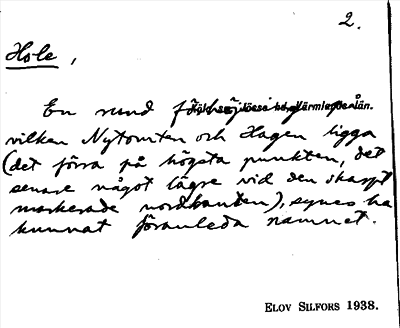 2.
Hole,
En rund
vilken Nytomten och Hagen ligga
(det förra på högsta punkten, det
senare något lägre vid den skarpt
markerade nordkanten), synes ha
kunnat föranleda namnet.
ELOV SILFORS 1938.